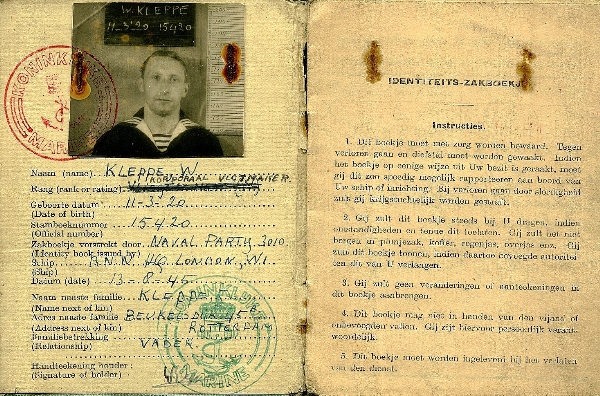 W. KLEPPE
11-3-'20 - 15420
KONINKLIJKE
MARINE
Naam (name) KLEPPE. W.
KORPORAAL
Rang (rank or rating)
Geboorte datum 11-3-20
(Date of birth)
Stamboeknummer 15420
(Official number)
Zakboekje verstrekt door NAVAL PARTY 3010.
(Identity book issued by)
Schip R.N.N. HQ. LONDON, W.1.
(Ship)
Datum (date) 13-8-45.
Naam naaste familie KLEPPE
(Name next of kin)
Adres naaste familie
(Address next of kin) ROTTERDAM
Familiebetrekking VADER
(Relationship)
Handteekening houder :
(Signature of holder)
KONINKLIJKE
MARINE
IDENTITEITS-ZAKBOEKJE
Instructies.
1. Dit boekje moet met zorg worden bewaard. Tegen
verloren gaan en diefstal moet worden gewaakt. Indien
het boekje op eenige wijze uit Uw bezit is geraakt, moet
gij dit zoo spoedig mogelijk rapporteeren aan boord van
Uw schip of inrichting. Bij verloren gaan door slordigheid
zult gij krijgstuchtelijk worden gestraft.
2. Gij zult dit boekje steeds bij U dragen, indien
omstandigheden en tenue dit toelaten. Gij zult het niet
bergen in plunjezak, koffer, regenjas, overjas enz. Gij
zult dit boekje toonen, indien daartoe bevoegde autoritei-
ten dit van U verlangen.
3. Gij zult geen veranderingen of aanteekeningen in
dit boekje aanbrengen.
4. Dit boekje mag niet in handen van den vijand of
onbevoegden vallen. Gij zijt hiervoor persoonlijk verant-
woordelijk.
5. Dit boekje moet worden ingeleverd bij het verlaten
van den dienst.